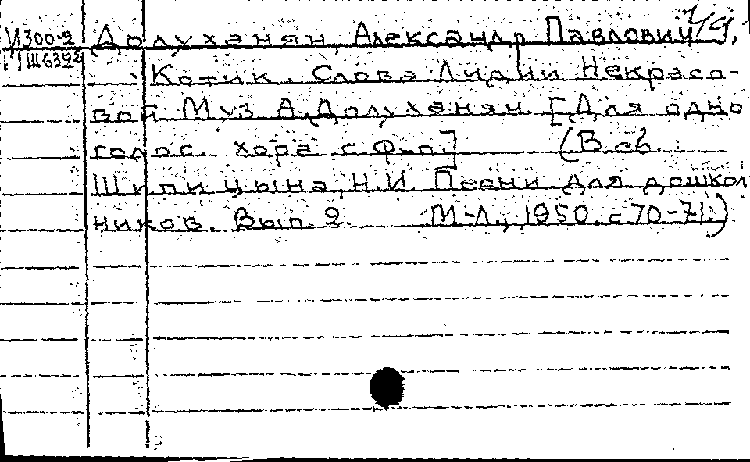 И300-2 Долуханян, Александр Павлович,
Котик. Слова Лидии Некрасо-
вой Муз А. Долуханян [Для одно
голос. хора с ф-п.] (В сб.
Шипицына, Н.И. Песни для дошкол
ников. Вып. 2 М-Л., 1950. с 70-71.)